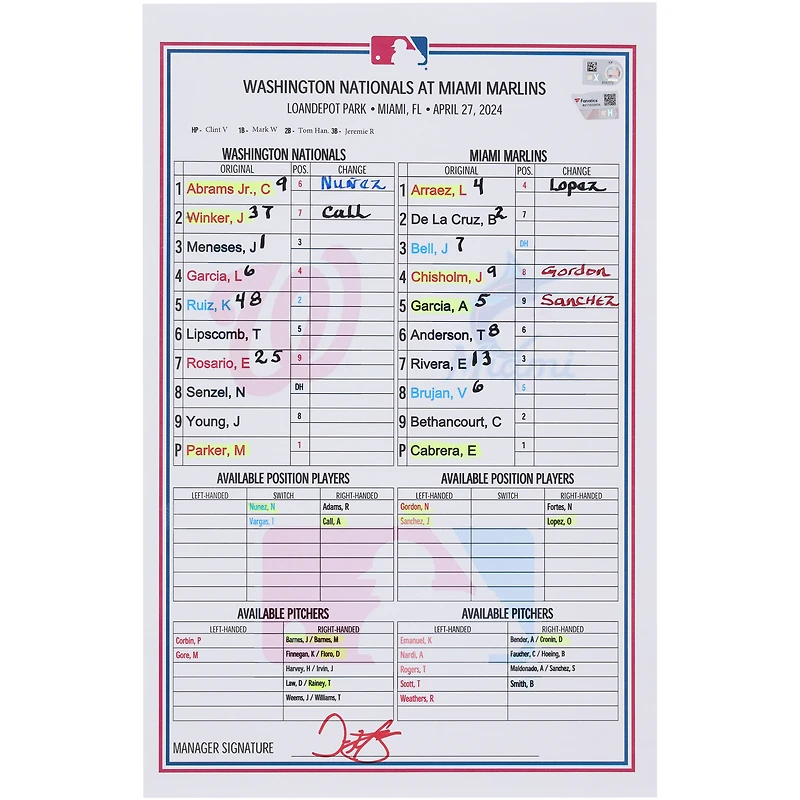 WASHINGTON NATIONALS AT MIAMI MARLINS
LOANDEPOT PARK • MIAMI, FL • APRIL 27, 2024
HP - Clint V 1B - Mark W 2B - Tom Han. 3B - Jeremie R
WASHINGTON NATIONALS
ORIGINAL POS. CHANGE
1 Abrams Jr., C 9 6 Nuñez
2 Winker, J 37 7 Call
3 Meneses, J 1 3
4 Garcia, L 6 4
5 Ruiz, K 48 2
6 Lipscomb, T 5
7 Rosario, E 25 9
8 Senzel, N DH
9 Young, J 8
P Parker, M 1
MIAMI MARLINS
ORIGINAL POS. CHANGE
1 Arraez, L 4 4 Lopez
2 De La Cruz, B 2 7
3 Bell, J 7 DH
4 Chisholm, J 9 8 Gordon
5 Garcia, A 5 9 Sanchez
6 Anderson, T 8 6
7 Rivera, E 13 3
8 Brujan, V 6 5
9 Bethancourt, C 2
P Cabrera, E 1
Miami
AVAILABLE POSITION PLAYERS
LEFT-HANDED SWITCH RIGHT-HANDED
Nunez, N Adams, R
Vargas, I Call, A
AVAILABLE POSITION PLAYERS
LEFT-HANDED SWITCH RIGHT-HANDED
Gordon, N Fortes, N
Sanchez, J Lopez, O
AVAILABLE PITCHERS
LEFT-HANDED RIGHT-HANDED
Corbin, P Barnes, J / Barnes, M
Gore, M Finnegan, K / Floro, D
Harvey, H / Irvin, J
Law, D / Rainey, T
Weems, J / Williams, T
AVAILABLE PITCHERS
LEFT-HANDED RIGHT-HANDED
Emanuel, K Bender, A / Cronin, D
Nardi, A Faucher, C / Hoeing, B
Rogers, T Maldonado, A / Sanchez, S
Scott, T Smith, B
Weathers, R
MANAGER SIGNATURE
Fanatics